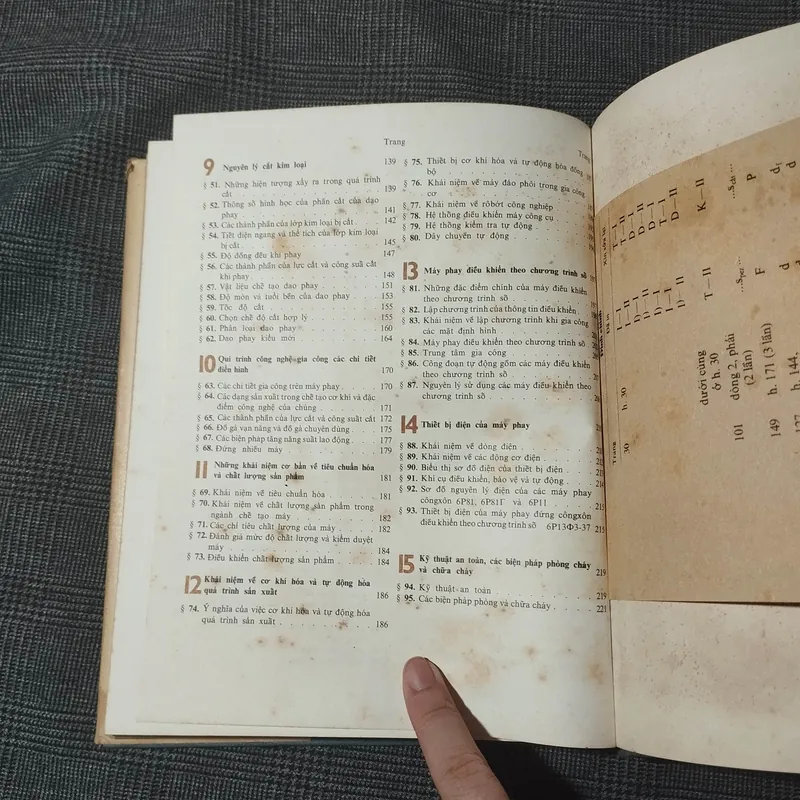 Trang
9 Nguyên lý cắt kim loại 139
§ 51. Những hiện tượng xảy ra trong quá trình
cắt . . . . . . . . . . . 139
§ 52. Thông số hình học của phần cắt của dao
phay . . . . . . . . . . . 141
§ 53. Các thành phần của lớp kim loại bị cắt . 142
§ 54. Tiết diện ngang và thể tích của lớp kim loại
bị cắt . . . . . . . . . . . 145
§ 55. Độ đồng đều khi phay . . . . . 147
§ 56. Các thành phần của lực cắt và công suất cắt
khi phay . . . . . . . . . . 148
§ 57. Vật liệu chế tạo dao phay . . . . 151
§ 58. Độ mòn và tuổi bền của dao phay . . 153
§ 59. Tốc độ cắt . . . . . . . . 155
§ 60. Chọn chế độ cắt hợp lý . . . . . 155
§ 61. Phân loại dao phay . . . . . . 160
§ 62. Dao phay kiểu mới . . . . . . 164
10 Qui trình công nghệ gia công các chi tiết
điển hình 170
§ 63. Các chi tiết gia công trên máy phay . . 170
§ 64. Các dạng sản xuất trong chế tạo cơ khí và đặc
điểm công nghệ của chúng . . . . 171
§ 65. Các thành phần của lực cắt và công suất cắt 172
§ 66. Đồ gá vạn năng và đồ gá chuyên dùng . . 175
§ 67. Các biện pháp tăng năng suất lao động . . 177
§ 68. Đứng nhiều máy . . . . . . 179
11 Những khái niệm cơ bản về tiêu chuẩn hóa
và chất lượng sản phẩm 181
§ 69. Khái niệm về tiêu chuẩn hóa . . . . 181
§ 70. Khái niệm về chất lượng sản phẩm trong
ngành chế tạo máy . . . . . . 182
§ 71. Các chỉ tiêu chất lượng của máy . . . 182
§ 72. Đánh giá mức độ chất lượng và kiểm duyệt
máy . . . . . . . . . . . 184
§ 73. Điều khiển chất lượng sản phẩm . . . 184
12 Khái niệm về cơ khí hóa và tự động hóa
quá trình sản xuất 186
§ 74. Ý nghĩa của việc cơ khí hóa và tự động hóa
quá trình sản xuất . . . . . . . 186
Trang
§ 75. Thiết bị cơ khí hóa và tự động hóa đồng
bộ
§ 76. Khái niệm về máy đảo phôi trong gia công
cơ
§ 77. Khái niệm về rôbốt công nghiệp
§ 78. Hệ thống điều khiển máy công cụ
§ 79. Hệ thống kiểm tra tự động
§ 80. Dây chuyền tự động
13 Máy phay điều khiển theo chương trình số
§ 81. Những đặc điểm chính của máy điều khiển
theo chương trình số
§ 82. Lập chương trình của thông tin điều khiển
§ 83. Khái niệm về lập chương trình khi gia công
các mặt định hình
§ 84. Máy phay điều khiển theo chương trình số
§ 85. Trung tâm gia công
§ 86. Công đoạn tự động gồm các máy điều khiển
theo chương trình số
§ 87. Nguyên lý sử dụng các máy điều khiển theo
chương trình số
14 Thiết bị điện của máy phay
§ 88. Khái niệm về dòng điện
§ 89. Khái niệm về các động cơ điện
§ 90. Biểu thị sơ đồ điện của thiết bị điện
§ 91. Khí cụ điều khiển, bảo vệ và tự động
§ 92. Sơ đồ nguyên lý điện của các máy phay
côngxôn 6P81, 6P81Г và 6P11
§ 93. Thiết bị điện của máy phay đứng côngxôn
điều khiển theo chương trình số 6P13Ф3-37 215
15 Kỹ thuật an toàn, các biện pháp phòng cháy
và chữa cháy 219
§ 94. Kỹ thuật an toàn . . . . . . . 219
§ 95. Các biện pháp phòng và chữa cháy . . . 221
Trang
30 h. 30
dưới cùng
ở h. 30
101 dòng 2, phải
(2 lần)
149 h. 171 (3 lần)
h. 144.
Đã in
T — II
F
d
K — II
P